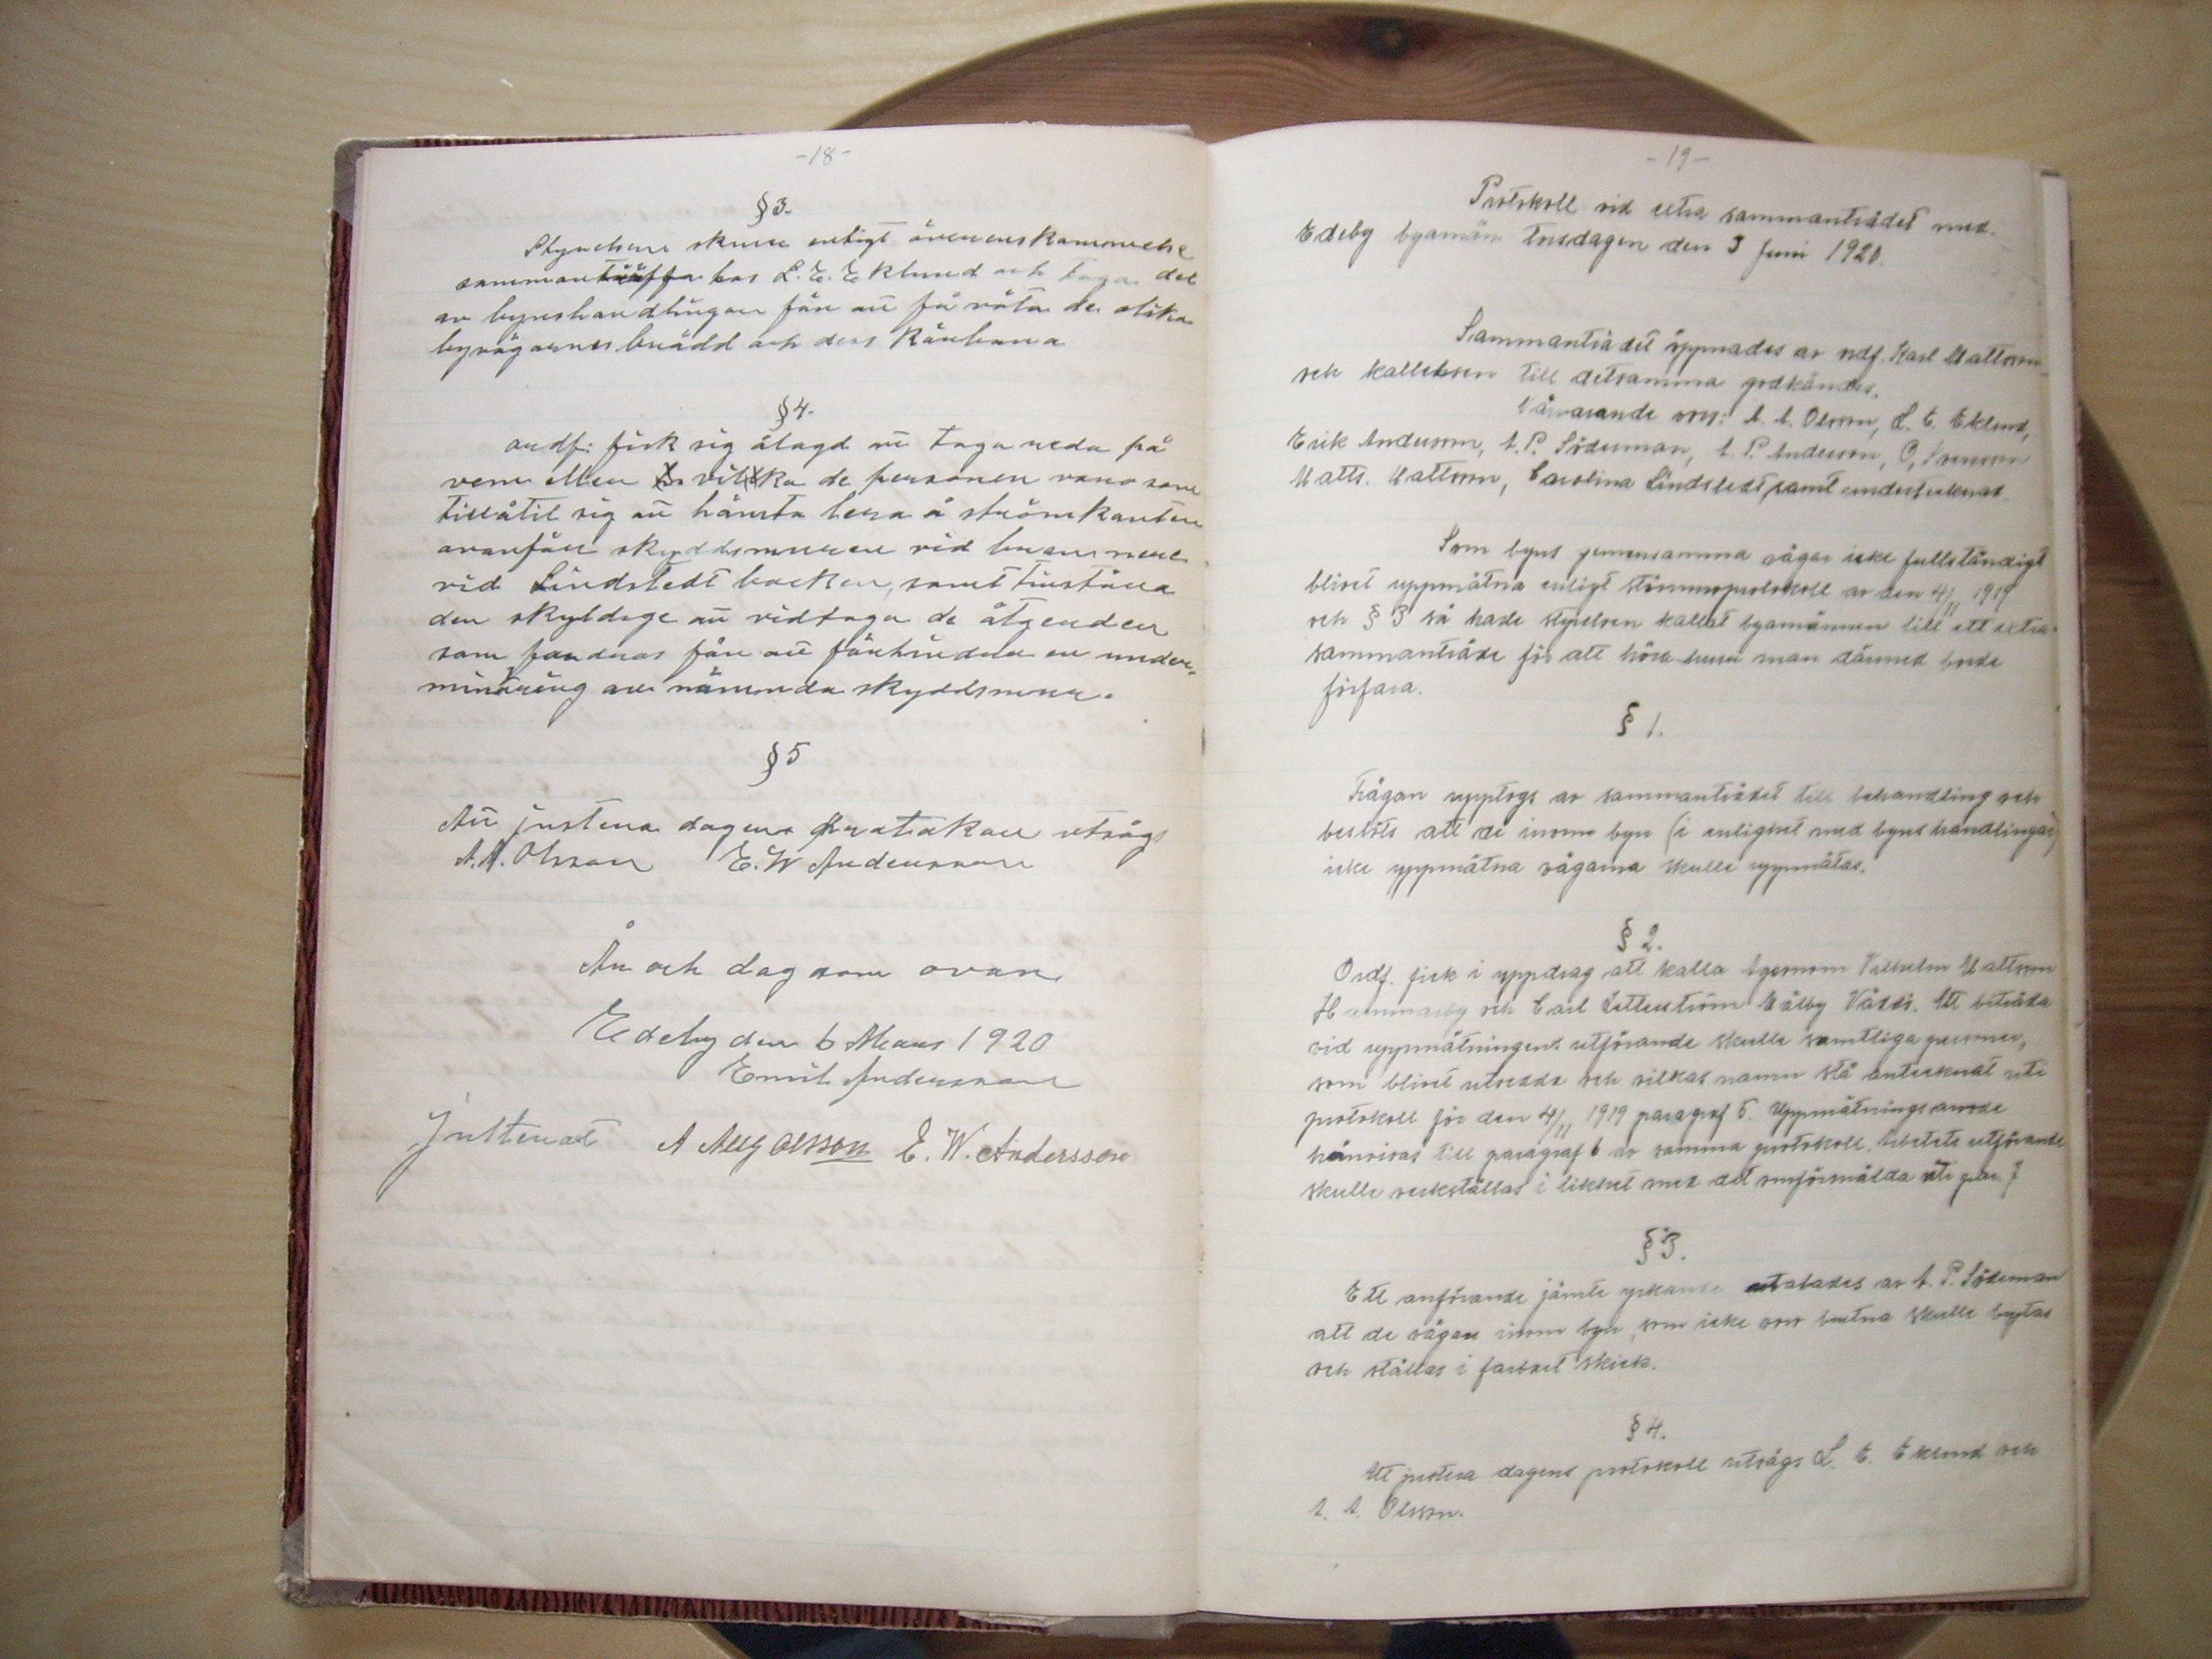 -18-
§3.
Styrelsen skulle enligt överenskommelse
sammanträffa hos L. E. Eklund och taga del
av byneshandlingar för att få röta de olika
byvägarnes brädd och dess
§4.
ordf: fick sig ålagd att taga reda på
vem eller vilka de personer voro som
tillåtit sig att hämta lera å strömkanten
ovanför skyddsmuren vid
vid Lindstedt backen, samt
den skyldige att vidtaga de åtgerder
som fordras för att förhindra en under-
minering av nämnda skyddsmur.
§5
Att justera dagens protokoll utsågs
A. A. Olsson E. W Andersson
År och dag som ovan
Edeby den 6 Mars 1920
Emil Andersson
Justerat A Aug Olsson E. W. Andersson
-19-
Protokoll vid extra sammanträdet med
Edeby byamän torsdagen den 3 Juni 1920.
Sammanträdet öppnades av ordf. Karl Mattsson
och kallelsen till detsamma godkändes.
Närvarande voro: A. A. Olsson, L. E. Eklund,
Erik Andersson, A. P. Söderman, A. P. Andersson, O,
Matts. Mattsson, Carolina Lindstedt samt undertecknad.
Som byns gemensamma vägar icke fullständigt
blivet uppmätna enligt stämmoprotokoll av den 4/11 1919
och § 3 så hade styrelsen kallat byamännen till ett extra
sammanträde för att höra huru man därmed borde
förfara.
§ 1.
Frågan upptogs av sammanträdet till behandling och
beslöts att de inom byn (i enlighet med byns handlingar)
icke uppmätna vägarna skulle uppmätas.
§ 2.
Ordf. fick i uppdrag att kalla Agronom Vilhelm Mattsson
Hammarby och Carl Zetterström Målby Väddö. Att biträda
vid uppmätningens utförande skulle samtliga personer,
som blivet utsedda och vilkas namn stå antecknat uti
protokoll för den 4/11 1919 paragraf 5. Uppmätnings
hänvisas till paragraf 6 av samma protokoll. Arbetets utförande
skulle verkställas i likhet med det omförmälda uti par. 7
§ 3.
Ett anförande jämte yrkande uttalades av A. P. Söderman
att de vägar inom byn, som icke voro brutna skulle brytas
och ställas i farbart skick.
§ 4.
Att justera dagens protokoll utsågs L. E. Eklund och
A. A. Olsson.